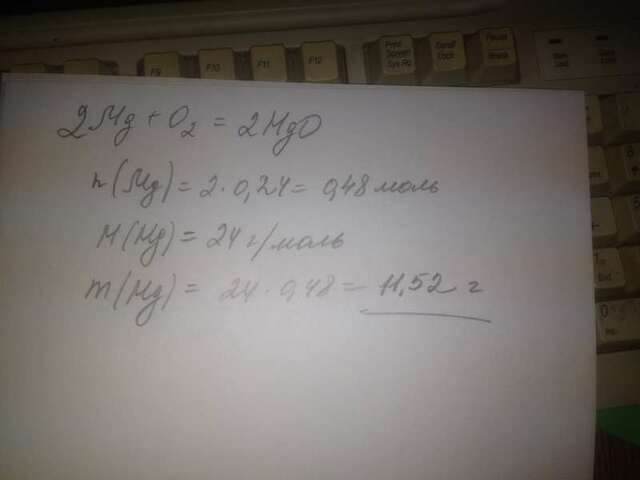 F9 F10 F11 F12 Print Screen Sys Rq Scroll Lock Pause Break
2Mg + O₂ = 2MgO
n(Mg) = 2·0,24 = 0,48 моль
M(Mg) = 24 г/моль
m(Mg) = 24·0,48 = 11,52 г